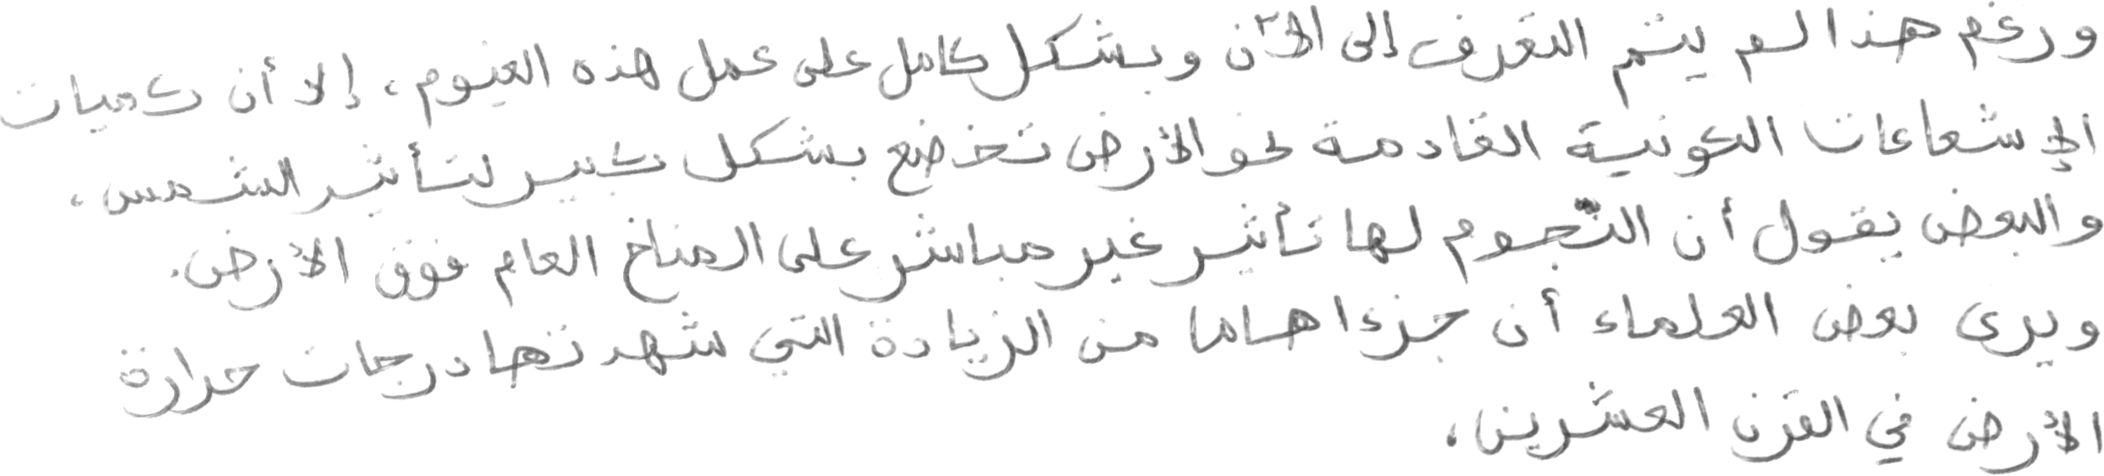 ورغم هذا لم يتم التعرف إلى الآن وبشكل كامل على عمل هذه الغيوم، إلا أن كميات
الإشعاعات الكونية القادمة نحو الأرض تخضع بشكل كبير لتأثير الشمس،
والبعض يقول أن النّجوم لها تأثير غير مباشر على المناخ العام فوق الأرض.
ويرى بعض العلماء أن جزءا هاما من الزيادة التي شهدتها درجات حرارة
الأرض في القرن العشرين،